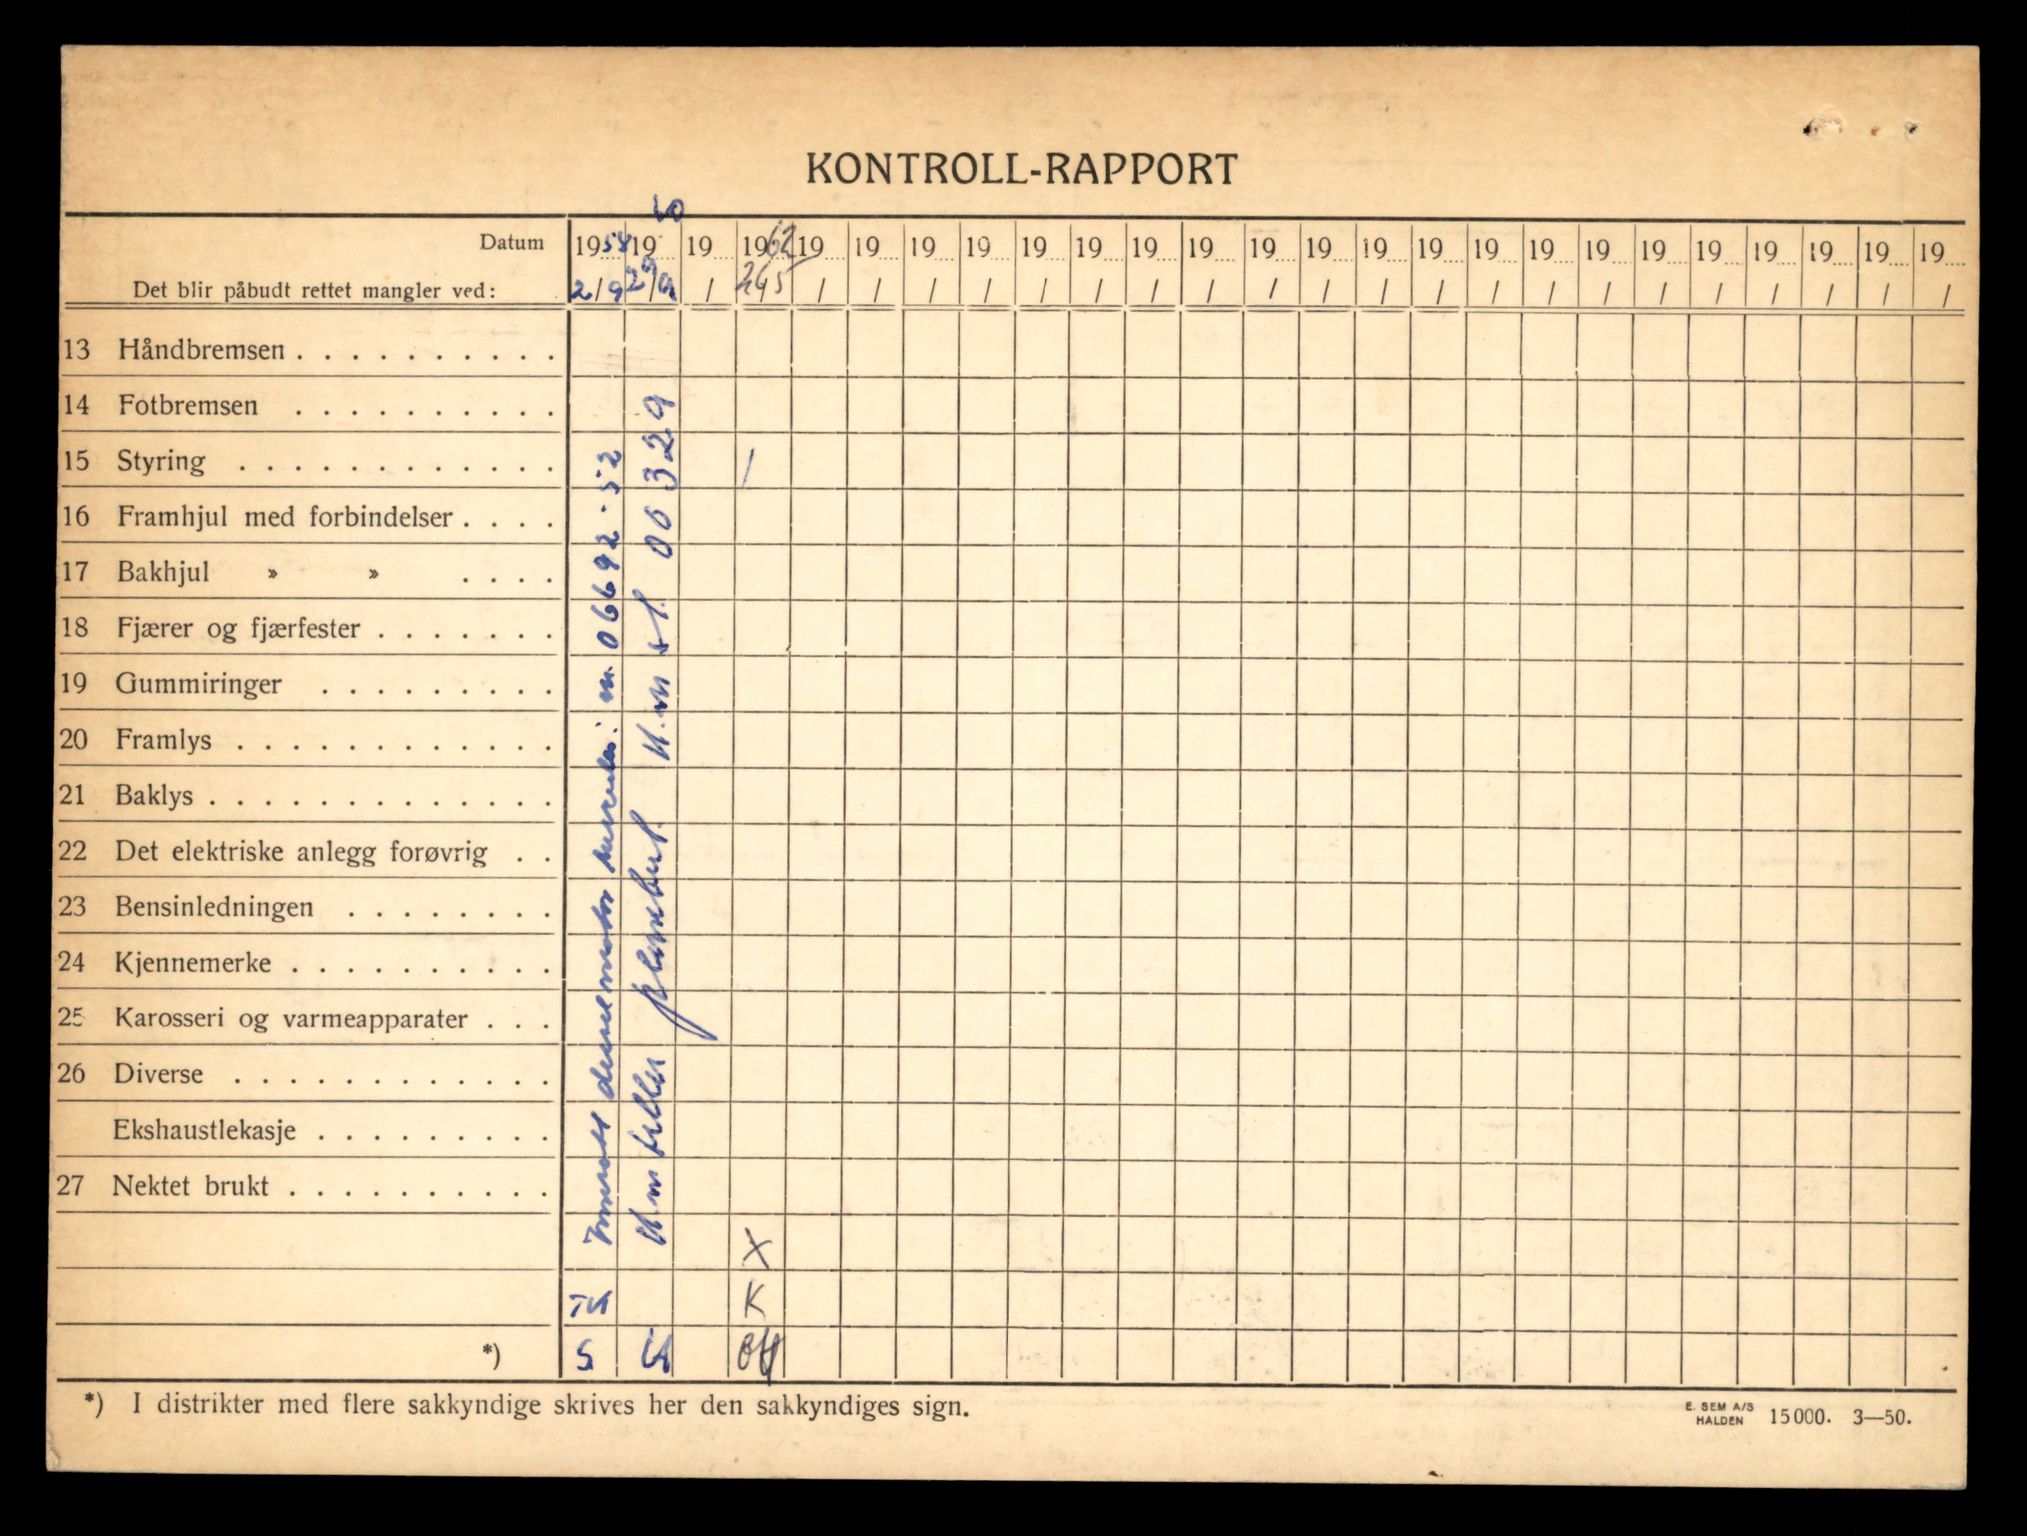 KONTROLL-RAPPORT
Datum 1958 19 50 19 1962 19 19 19 19 19 19 19 19 19 19 19 19 19 19 19 19 19 19 19 19 19
Det blir påbudt rettet mangler ved: 2/9 29/9 / 24/5 / / / / / / / / / / / / / / / / / / / / /
13 Håndbremsen
14 Fotbremsen
15 Styring /
16 Framhjul med forbindelser
17 Bakhjul » »
18 Fjærer og fjærfester
19 Gummiringer
20 Framlys
21 Baklys
22 Det elektriske anlegg forøvrig
23 Bensinledningen
24 Kjennemerke
25 Karosseri og varmeapparater
26 Diverse
Ekshaustlekasje
27 Nektet brukt
m. 06692-52
plombert. 00329
X
K
*) S
*) I distrikter med flere sakkyndige skrives her den sakkyndiges sign.
E. SEM A/S HALDEN 15000. 3—50.